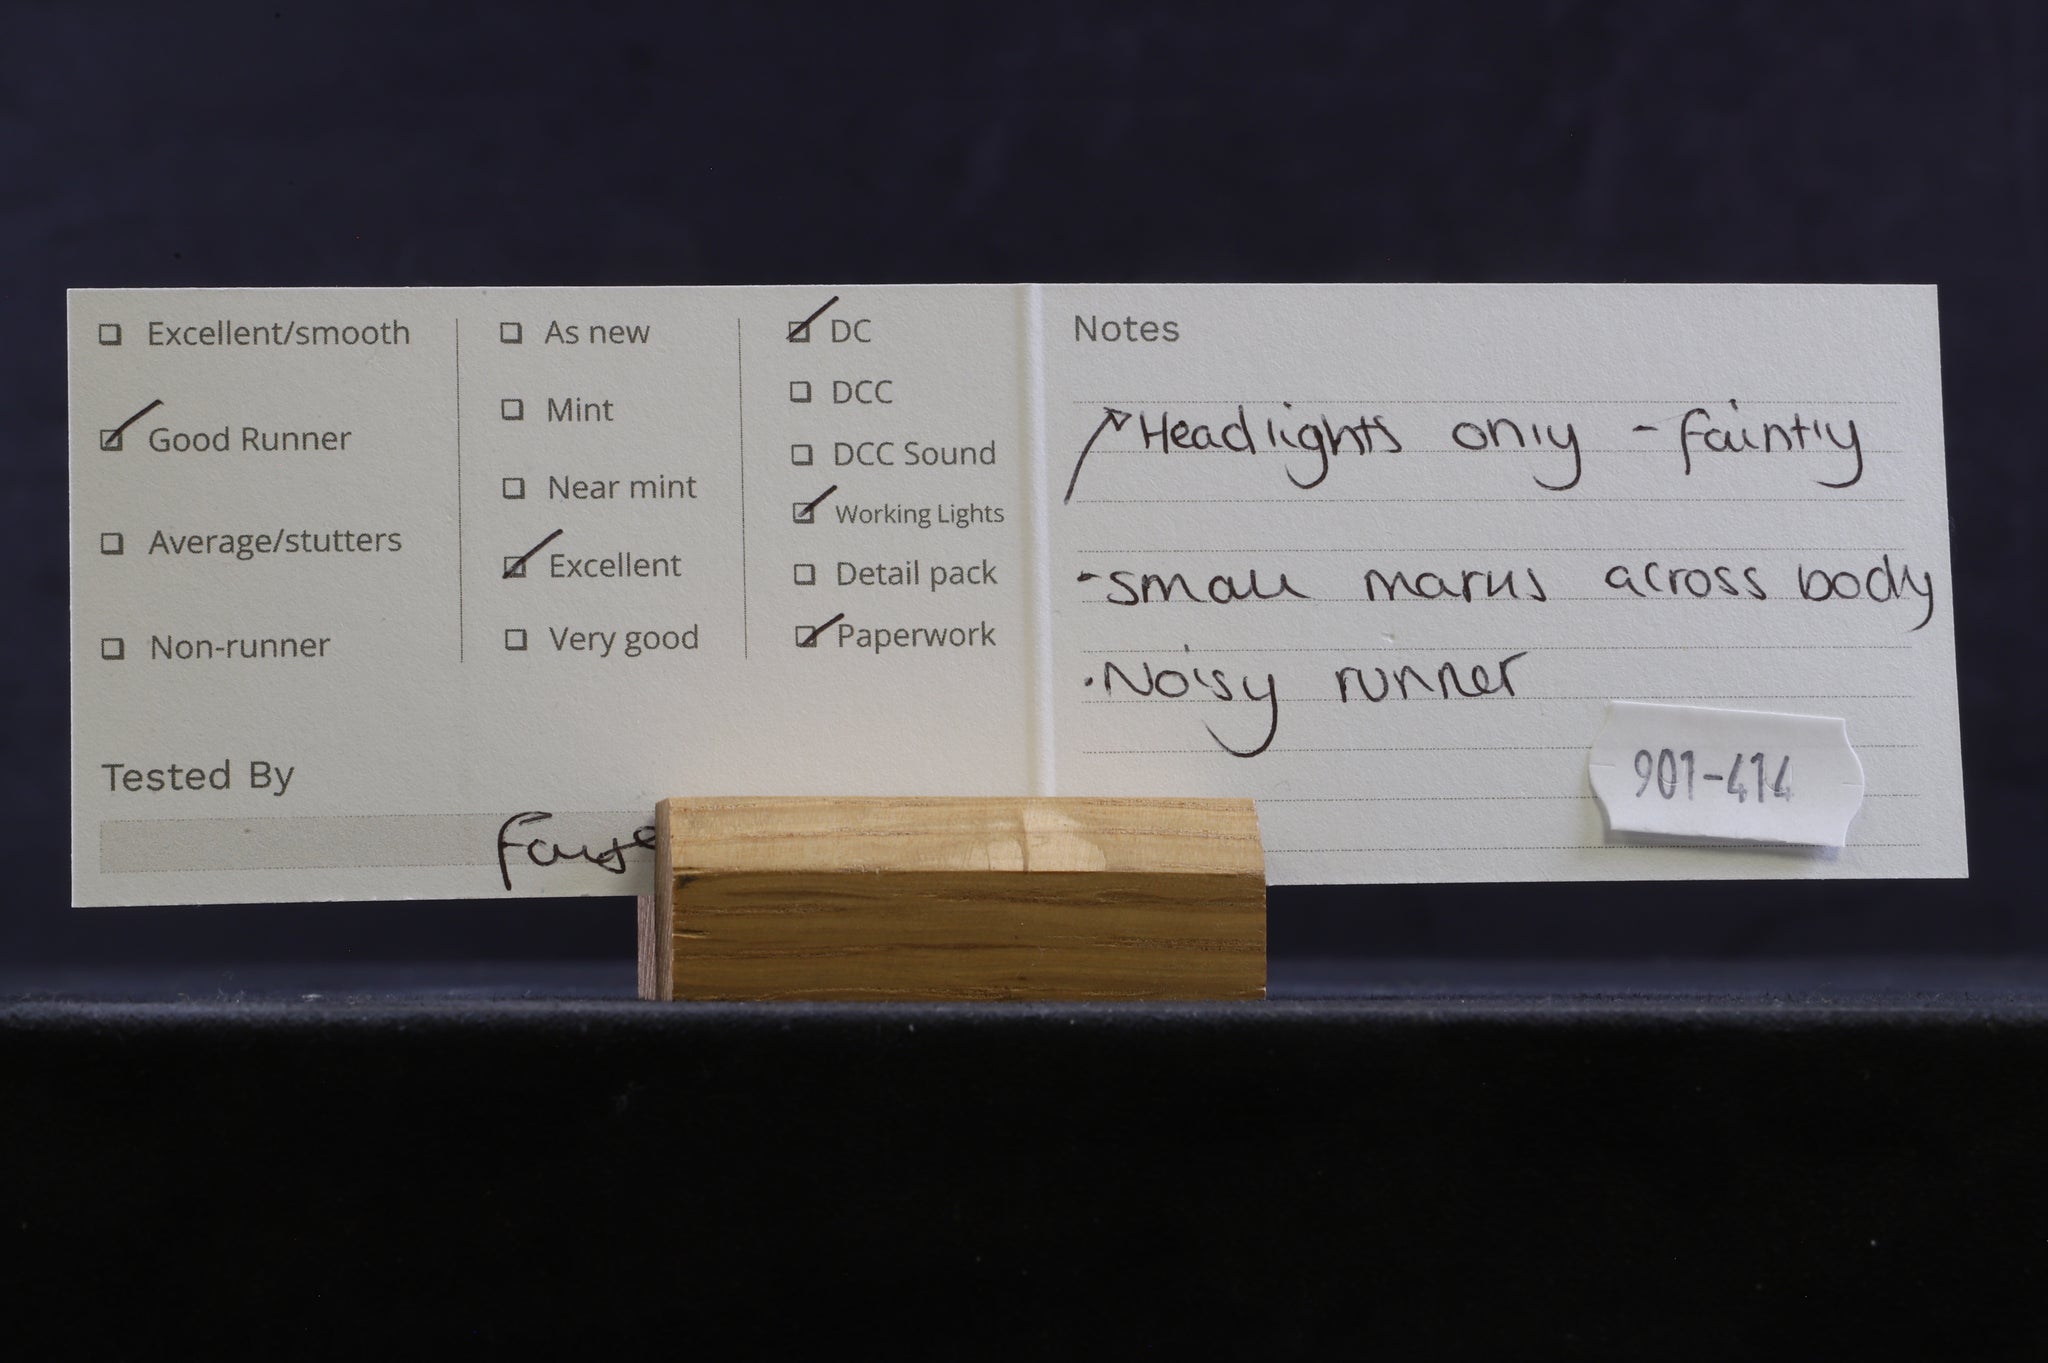 Excellent/smooth
Good Runner
Average/stutters
Non-runner
As new
Mint
Near mint
Excellent
Very good
DC
DCC
DCC Sound
Working Lights
Detail pack
Paperwork
Tested By
Faye
Notes
Headlights only - faintly
- small marks across body
· Noisy runner
901-414